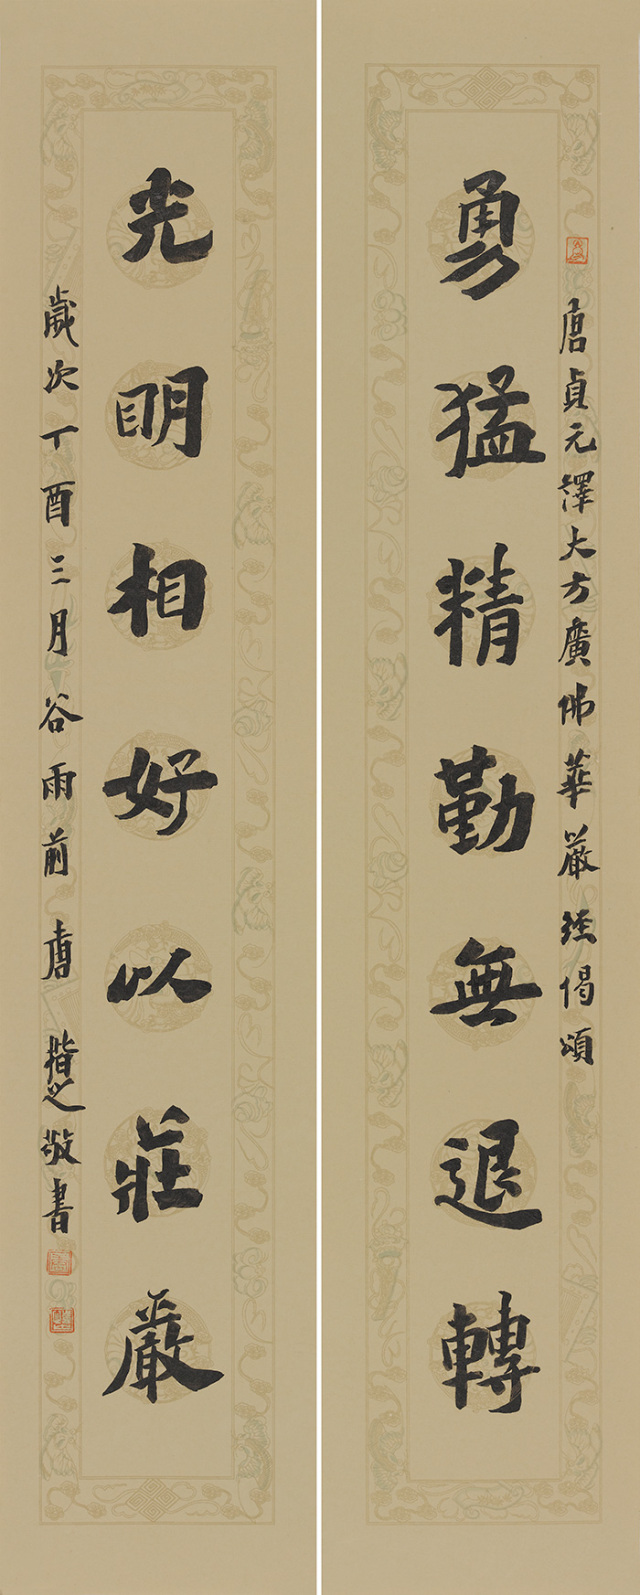 唐貞元譯大方廣佛華嚴經偈頌
勇猛精勤無退轉
光明相好以莊嚴
歲次丁酉三月谷雨前唐楷之敬書